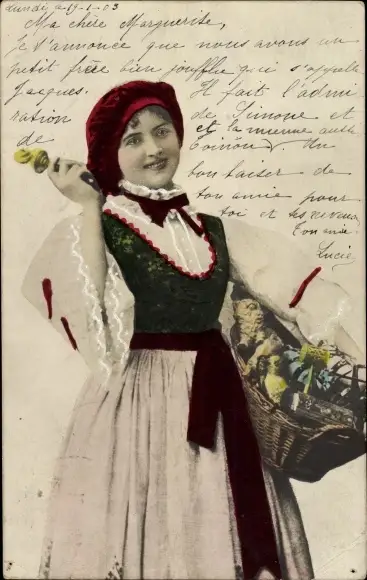 Lundi, 19-1-03
Ma chère Marguerite,
Je t'annonce que nous avons un
petit frère bien joufflu qui s'appelle
Jacques. Il fait l'admi
ration de Simone et
de et la mienne aussi
Un
bon baiser de
ton amie pour
toi et tes
Ton amie
Lucie